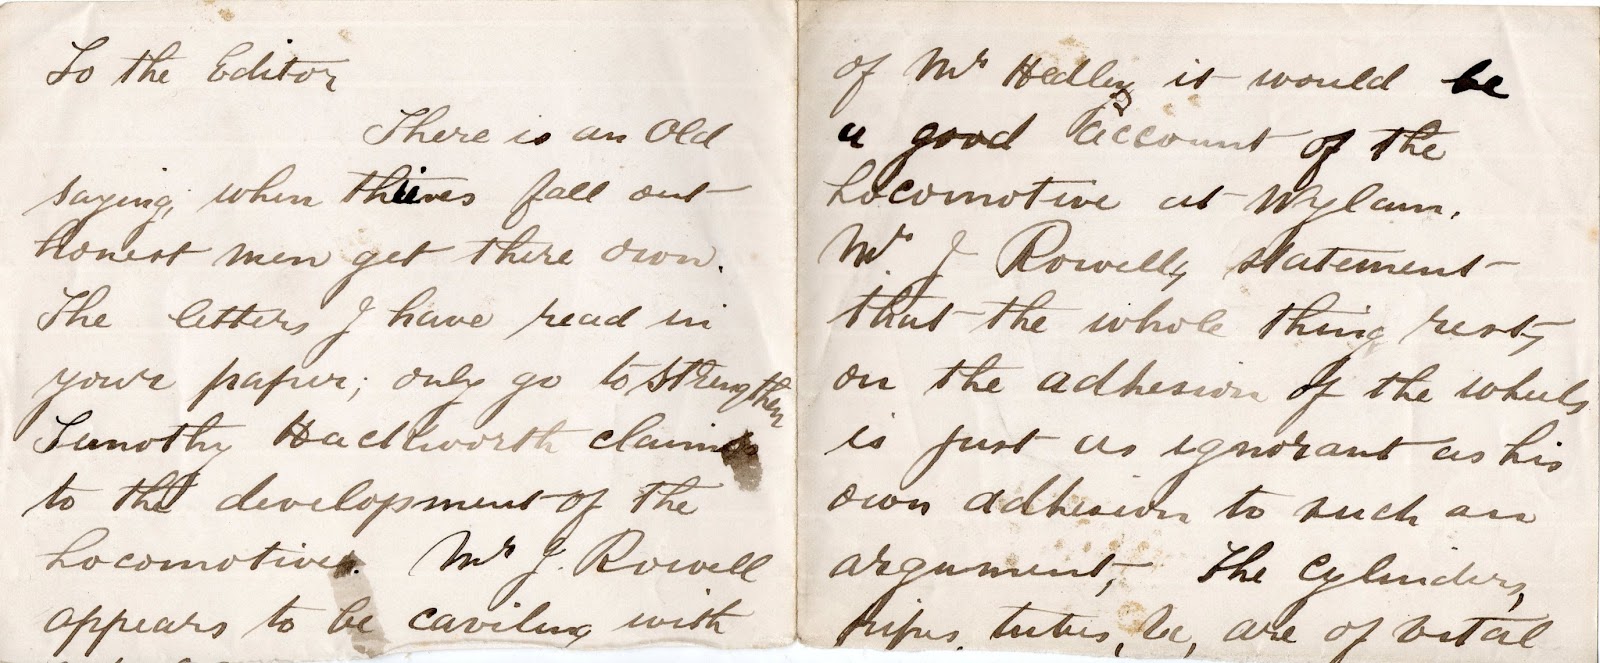 To the Editor
There is an Old
saying, when thieves fall out
honest men get there own.
The letters I have read in
your paper; only go to strengthen
Timothy Hackworth claims
to the development of the
Locomotive. Mr J. Rowell
appears to be caviling with
of Mr Hedley it would be
a good account of the
Locomotive at Wylam.
Mr J Rowells statement
that the whole thing rests
on the adhesion of the wheels
is just as ignorant as his
own adhesion to such an
argument, The Cylinders,
pipes, tubes, &c, are of vital